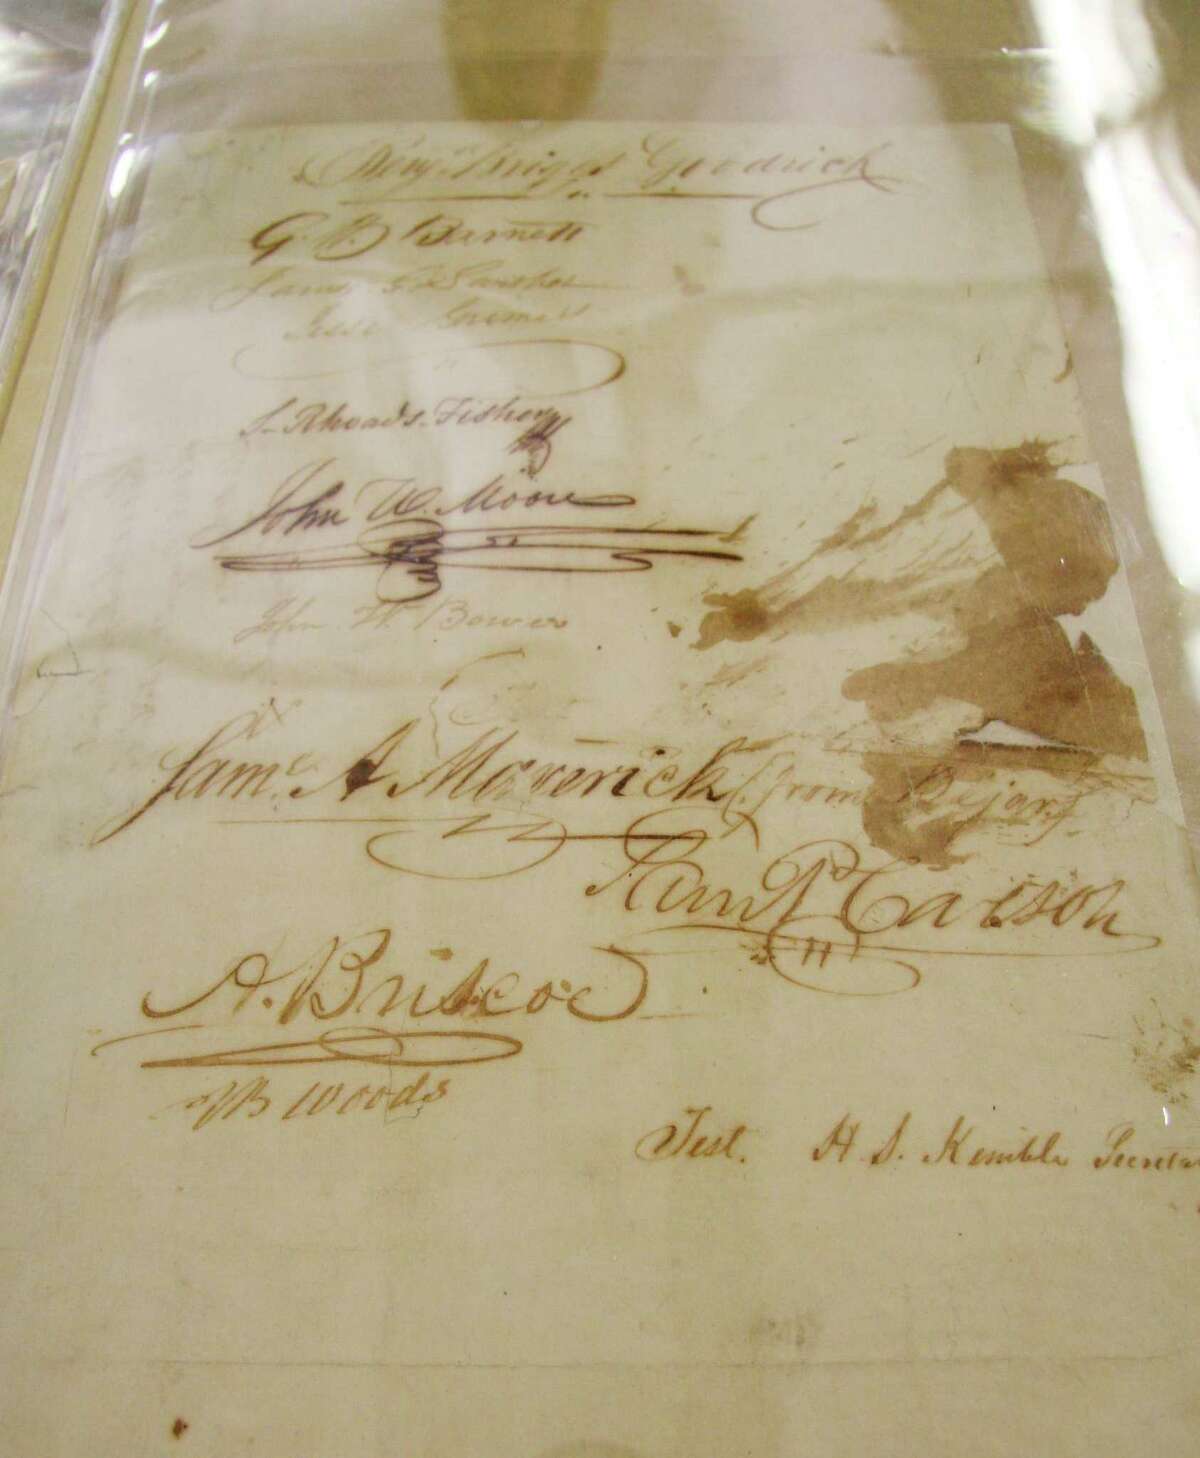 Benj. Briggs Goodrich
G. W. Barnett
James G. Swisher
Jesse Grimes
S. Rhoads Fisher
John W. Moore
John W. Bower
Saml. A Maverick (from Bejar)
Sam P. Carson
A. Briscoe
JB Woods
Test. H. S. Kimble Secretar